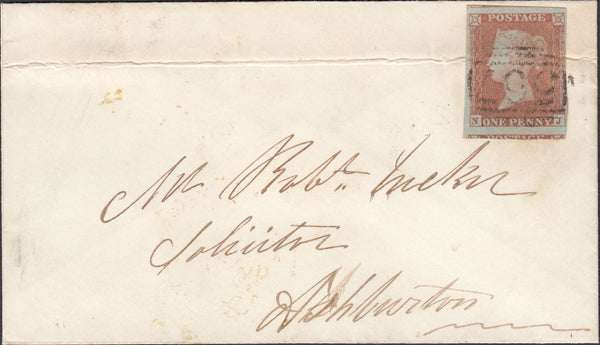 POSTAGE
N ONE PENNY J
Mr Robt. Tucker
Solicitor
Ashburton